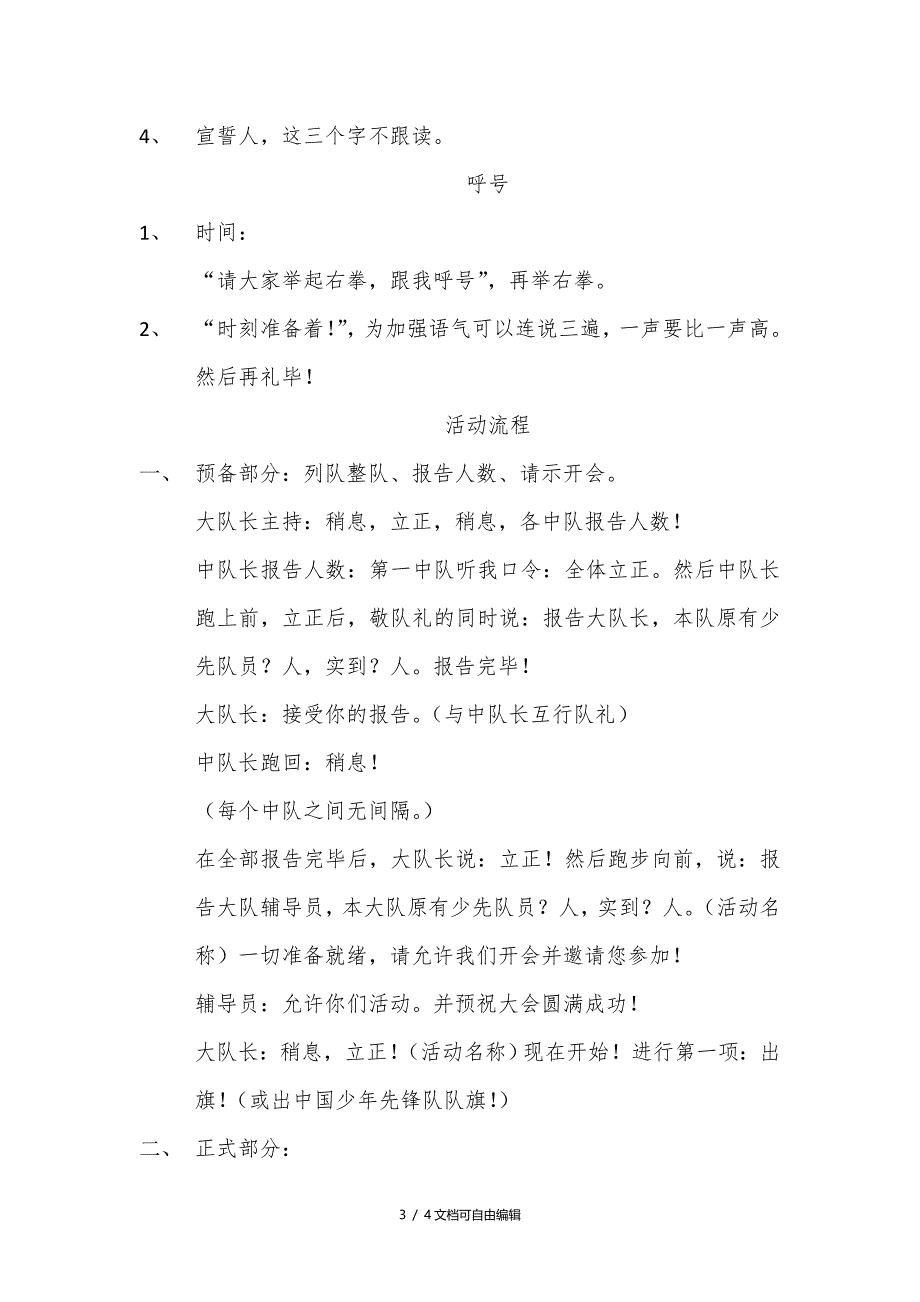 4、 宣誓人，这三个字不跟读。
呼号
1、 时间：
“请大家举起右拳，跟我呼号”，再举右拳。
2、 “时刻准备着！”，为加强语气可以连说三遍，一声要比一声高。
然后再礼毕！
活动流程
一、 预备部分：列队整队、报告人数、请示开会。
大队长主持：稍息，立正，稍息，各中队报告人数！
中队长报告人数：第一中队听我口令：全体立正。然后中队长
跑上前，立正后，敬队礼的同时说：报告大队长，本队原有少
先队员？人，实到？人。报告完毕！
大队长：接受你的报告。（与中队长互行队礼）
中队长跑回：稍息！
（每个中队之间无间隔。）
在全部报告完毕后，大队长说：立正！然后跑步向前，说：报
告大队辅导员，本大队原有少先队员？人，实到？人。（活动名
称）一切准备就绪，请允许我们开会并邀请您参加！
辅导员：允许你们活动。并预祝大会圆满成功！
大队长：稍息，立正！（活动名称）现在开始！进行第一项：出
旗！（或出中国少年先锋队队旗！）
二、 正式部分：
3 / 4文档可自由编辑